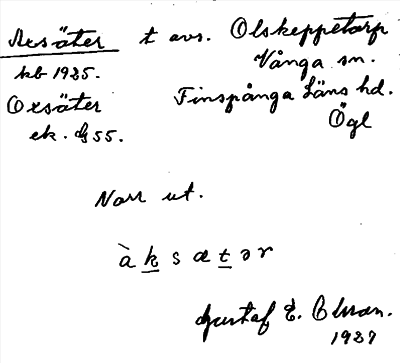 Axsäter t avs. Olskeppetorp
kb 1925. Vånga sn.
Oxsäter Finspånga Läns hd.
ek. G55. Ögl
Norr ut.
àksætər
Gustaf E. Olsson.
1927